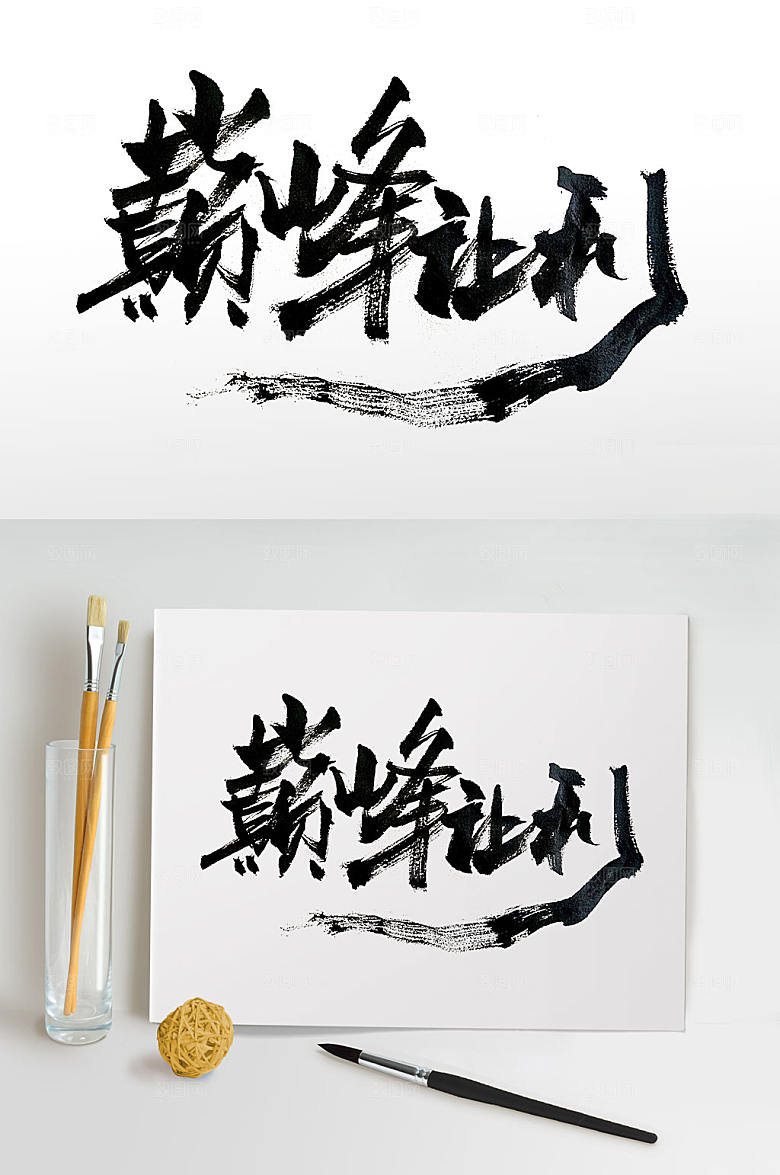 巅峰让利
巅峰让利